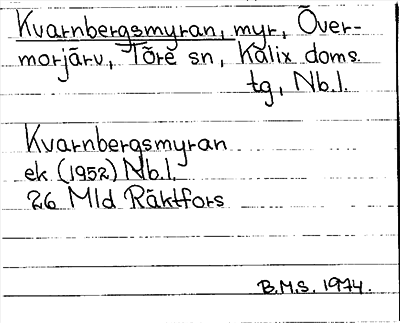 Kvarnbergsmyran, myr, Över-
morjärv, Töre sn, Kalix doms.
tg, Nb.l.
Kvarnbergsmyran
ek. (1952) Nb.l.
26 Mld Räktfors
B.M.S. 1974.